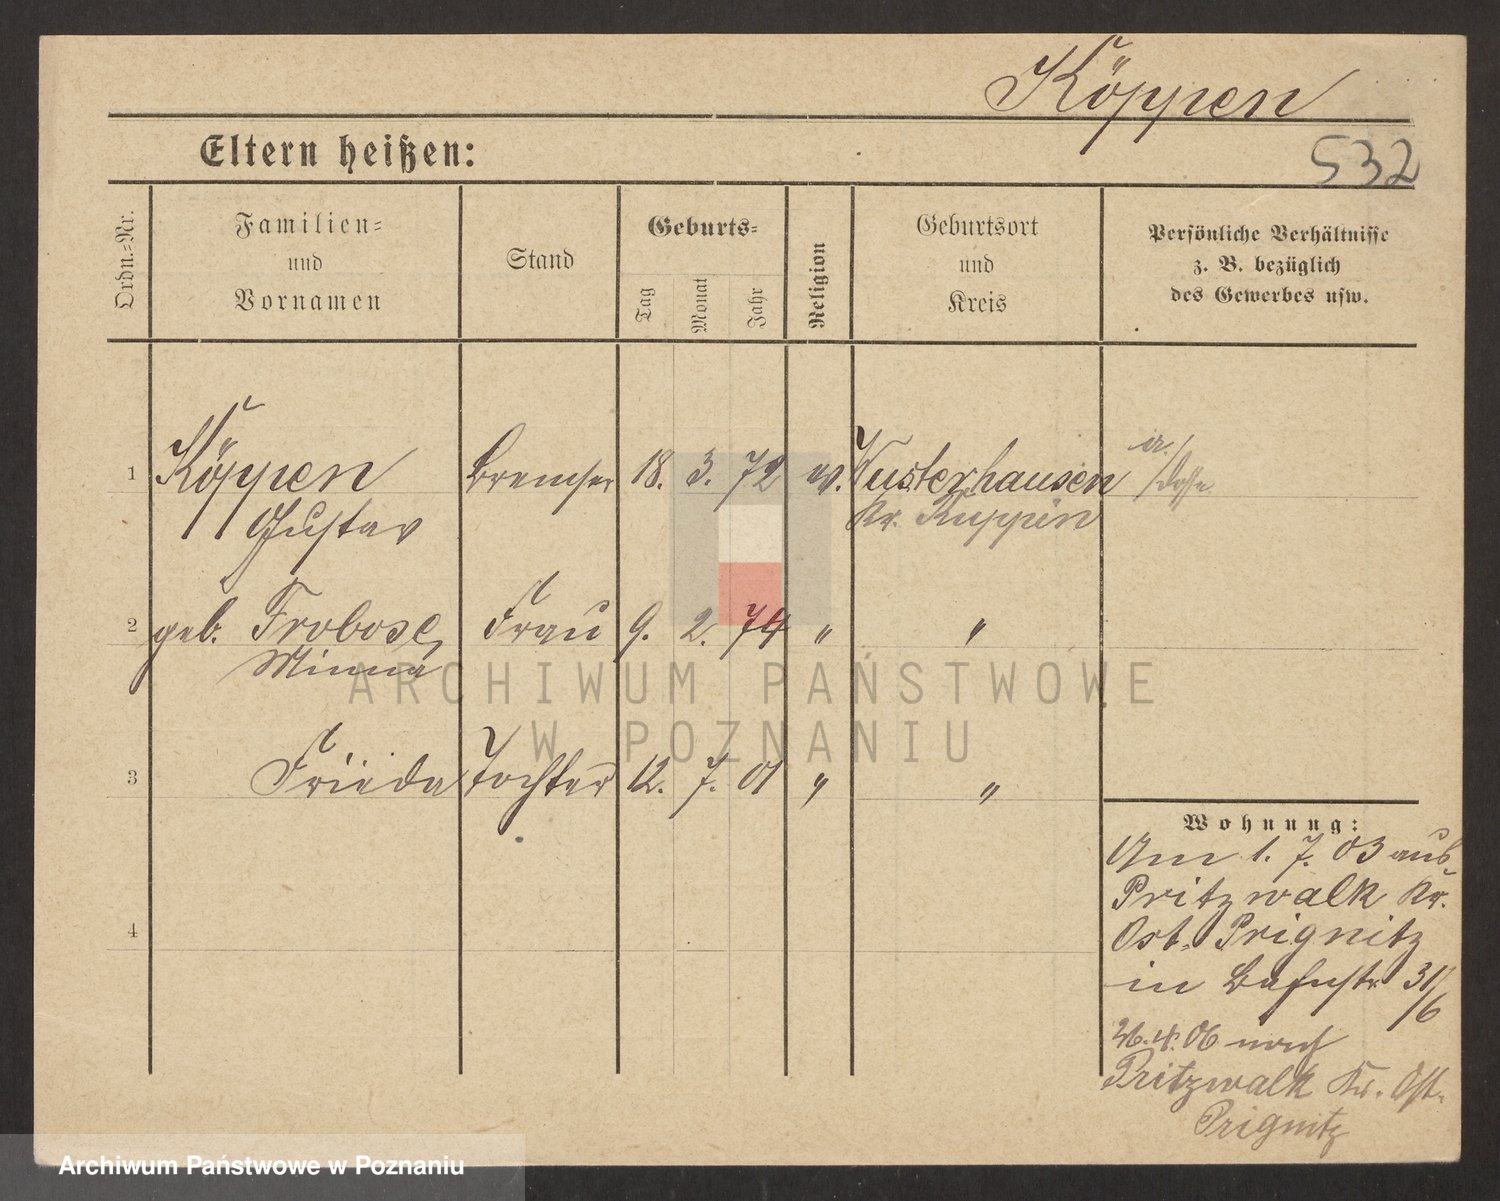 Köppen
Eltern heißen:
532
Ordn.-Nr.
Familien-
und
Vornamen
Stand
Geburts-
Tag
Monat
Jahr
Religion
Geburtsort
und
Kreis
Persönliche Verhältnisse
z. B. bezüglich
des Gewerbes usw.
1 Köppen Bremser 18. 3. 72 ev. Wusterhausen a./Dosse
Gustav Kr. Ruppin
2 geb. Frobose, Frau 9. 2. 74 " "
Minna
3 Frieda Tochter 12. 7. 01 " "
4
Wohnung:
Am 1. 7. 03 aus
Pritzwalk Kr.
Ost-Prignitz
in Bahnstr 31/6
26.4.06 nach
Pritzwalk Kr. Ost-
Prignitz
ARCHIWUM PAŃSTWOWE
W POZNANIU
Archiwum Państwowe w Poznaniu